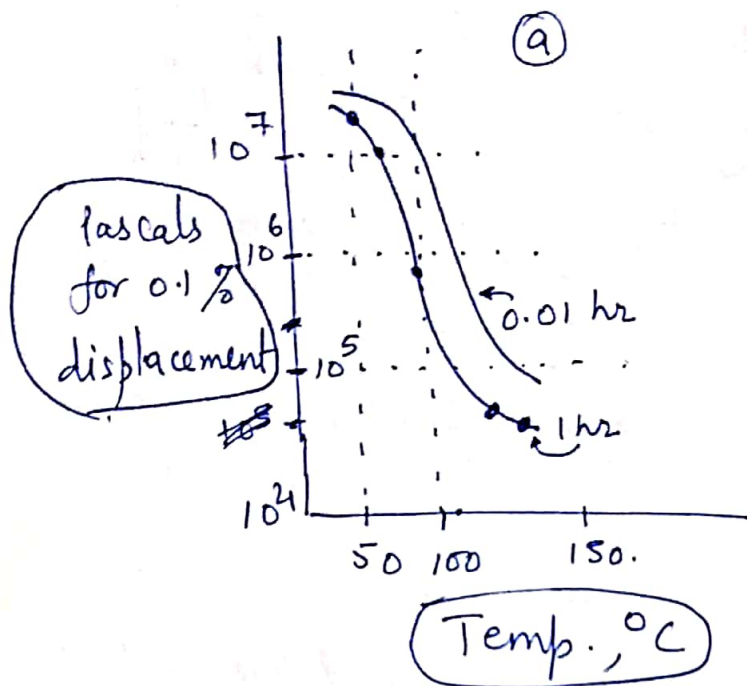 a
10^7
10^6
10^5
10^4
Pascals
for 0.1%
displacement
0.01 hr
1 hr
50 100 150.
Temp., °C